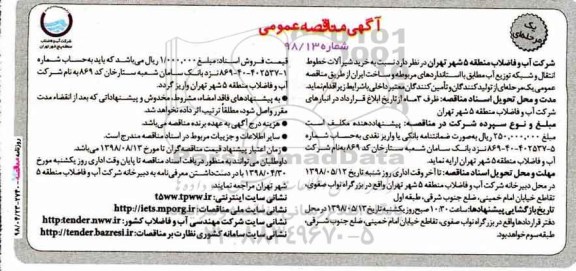 آگهی مناقصه عمومی
شماره ۹۸/۱۳
یک مرحله‌ای
شرکت آب و فاضلاب منطقه ۵ شهر تهران
شرکت آب و فاضلاب منطقه ۵ شهر تهران در نظر دارد نسبت به خرید شیرآلات خطوط
انتقال و شبکه توزیع آب مطابق با استانداردهای مربوطه و ساخت ایران از طریق مناقصه
عمومی یک مرحله‌ای از تولیدکنندگان و تأمین کنندگان معتبر داخلی با شرایط زیر اقدام نماید.
مدت و محل تحویل اسناد مناقصه: ظرف ۳ ماه از تاریخ ابلاغ قرارداد در انبارهای
شرکت آب و فاضلاب منطقه ۵ شهر تهران
مبلغ و نوع سپرده شرکت در مناقصه: پیشنهاددهنده مکلف است
۲۵۰,۰۰۰,۰۰۰ ریال به‌صورت ضمانتنامه بانکی یا واریز نقدی به حساب شماره
۵-۴۰۲۵۳۷-۴۰-۸۶۹ نزد بانک سامان شعبه ستارخان کد ۸۶۹ به نام شرکت
آب و فاضلاب منطقه ۵ شهر تهران ارایه نماید.
مهلت و محل تحویل اسناد مناقصه: تا آخر وقت اداری روز شنبه تاریخ ۱۳۹۸/۰۵/۱۲
در محل دبیرخانه شرکت آب و فاضلاب منطقه ۵ شهر تهران واقع در بزرگراه نواب صفوی،
تقاطع خیابان امام خمینی، ضلع جنوب شرقی، طبقه اول
تاریخ بازگشایی پیشنهادها: ساعت ۱۰:۳۰ صبح روز یکشنبه تاریخ ۱۳۹۸/۰۵/۱۳ در محل
دفتر قراردادها واقع در بزرگراه نواب صفوی، تقاطع خیابان امام خمینی، ضلع جنوب شرقی،
طبقه سوم خواهد بود.
قیمت فروش اسناد: مبلغ ۱,۰۰۰,۰۰۰ ریال می‌باشد که باید به حساب شماره
۱-۴۰۲۵۳۷-۴۰-۸۶۹ نزد بانک سامان شعبه ستارخان کد ۸۶۹ به نام شرکت
آب و فاضلاب منطقه ۵ شهر تهران واریز گردد.
به پیشنهادهای فاقد امضاء، مشروط، مخدوش و پیشنهاداتی که بعد از انقضاء مدت
مقرر واصل شود، مطلقاً ترتیب اثر داده نخواهد شد.
هزینه درج آگهی به عهده برنده مناقصه می‌باشد.
سایر اطلاعات و جزییات مربوط در اسناد مناقصه مندرج است.
زمان اعتبار پیشنهاد قیمت مناقصه گران تا مورخ ۱۳۹۸/۰۸/۱۲ می‌باشد.
داوطلبین می‌توانند به منظور دریافت اسناد مناقصه تا پایان وقت اداری روز یکشنبه مورخ
۱۳۹۸/۰۴/۳۰ با در دست داشتن معرفی‌نامه به دبیرخانه شرکت آب و فاضلاب منطقه ۵
شهر تهران مراجعه نمایند.
نشانی سایت اینترنتی: t5ww.tpww.ir
نشانی سایت ملی مناقصات: http://iets.mporg.ir
نشانی سایت شرکت مهندسی آب و فاضلاب کشور: http:tender.nww.ir
نشانی سایت سامانه کشوری نظارت بر مناقصات: http://tender.bazresi.ir